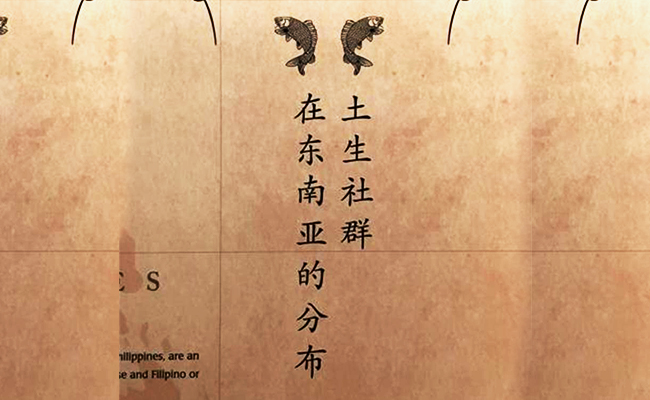 土生社群
在东南亚的分布
E S
hilippines, are an
se and Filipino or